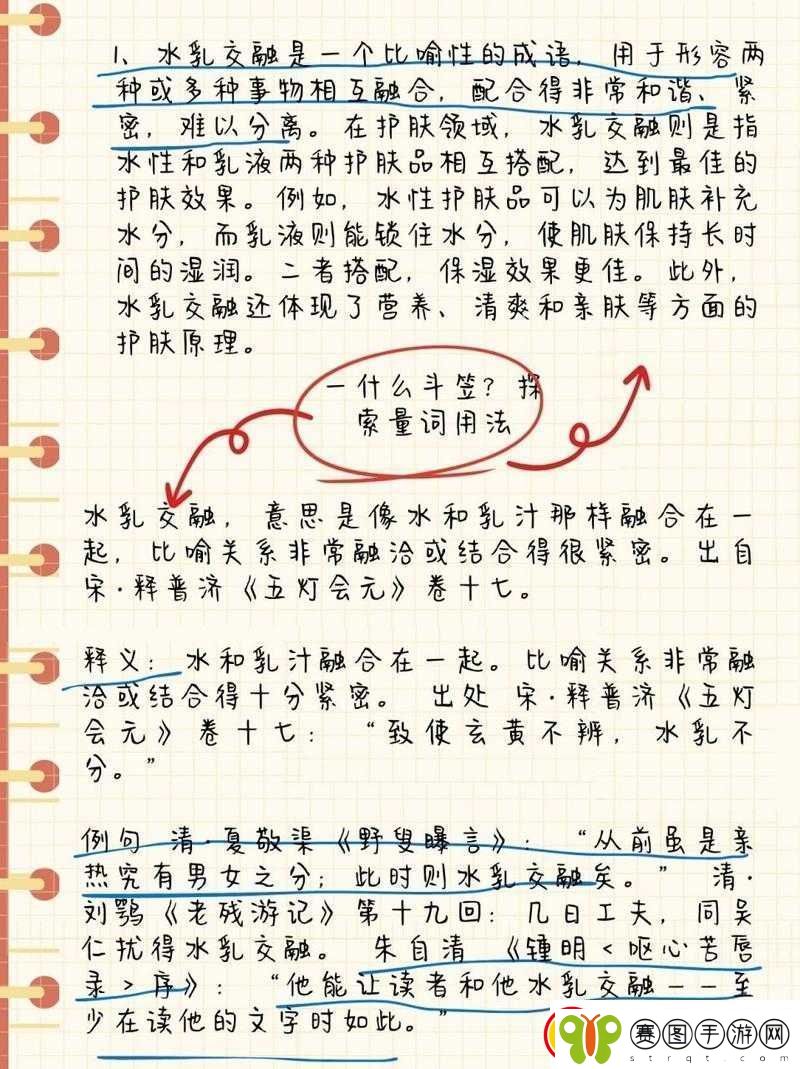 1、水乳交融是一个比喻性的成语，用于形容两
种或多种事物相互融合，配合得非常和谐、紧
密，难以分离。在护肤领域，水乳交融则是指
水性和乳液两种护肤品相互搭配，达到最佳的
护肤效果。例如，水性护肤品可以为肌肤补充
水分，而乳液则能锁住水分，使肌肤保持长时
间的湿润。二者搭配，保湿效果更佳。此外，
水乳交融还体现了营养、清爽和亲肤等方面的
护肤原理。
一什么斗笠？探
索量词用法
水乳交融，意思是像水和乳汁那样融合在一
起，比喻关系非常融洽或结合得很紧密。出自
宋·释普济《五灯会元》卷十七。
释义：水和乳汁融合在一起。比喻关系非常融
洽或结合得十分紧密。 出处 宋·释普济《五灯
会元》卷十七：“致使玄黄不辨，水乳不
分。”
例句 清·夏敬渠《野叟曝言》：“从前虽是亲
热究有男女之分；此时则水乳交融矣。” 清·
刘鹗《老残游记》第十九回：几日工夫，同吴
仁扰得水乳交融。 朱自清 《锺明＜呕心苦唇
录＞序》：“他能让读者和他水乳交融－－至
少在读他的文字时如此。”
赛图手游网
strqt.com